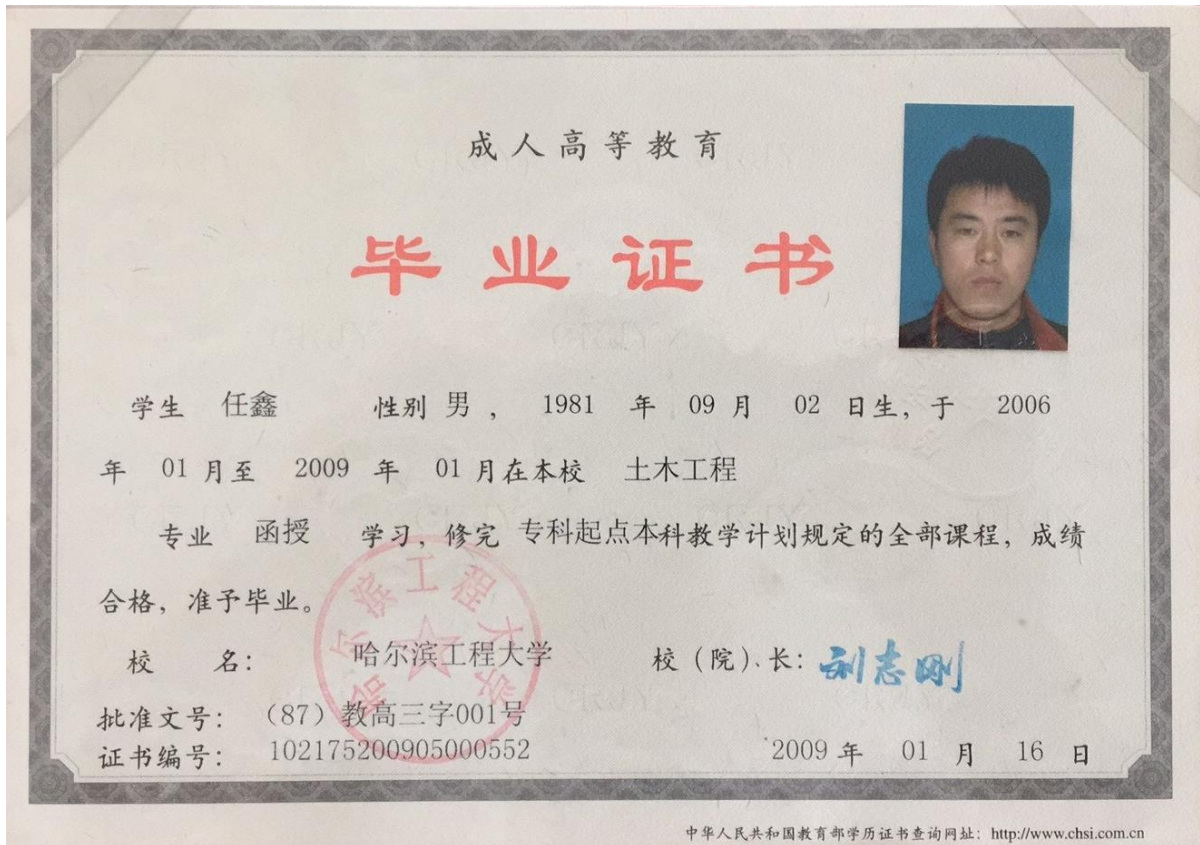 成人高等教育
毕业证书
学生 任鑫 性别 男， 1981 年 09 月 02 日生，于 2006
年 01 月至 2009 年 01 月在本校 土木工程
专业 函授 学习，修完 专科起点本科教学计划规定的全部课程，成绩
合格，准予毕业。
校 名： 哈尔滨工程大学 校（院）、长： 刘志刚
批准文号： （87）教高三字001号
证书编号： 102175200905000552 2009 年 01 月 16 日
哈尔滨工程大学
中华人民共和国教育部学历证书查询网址：http://www.chsi.com.cn